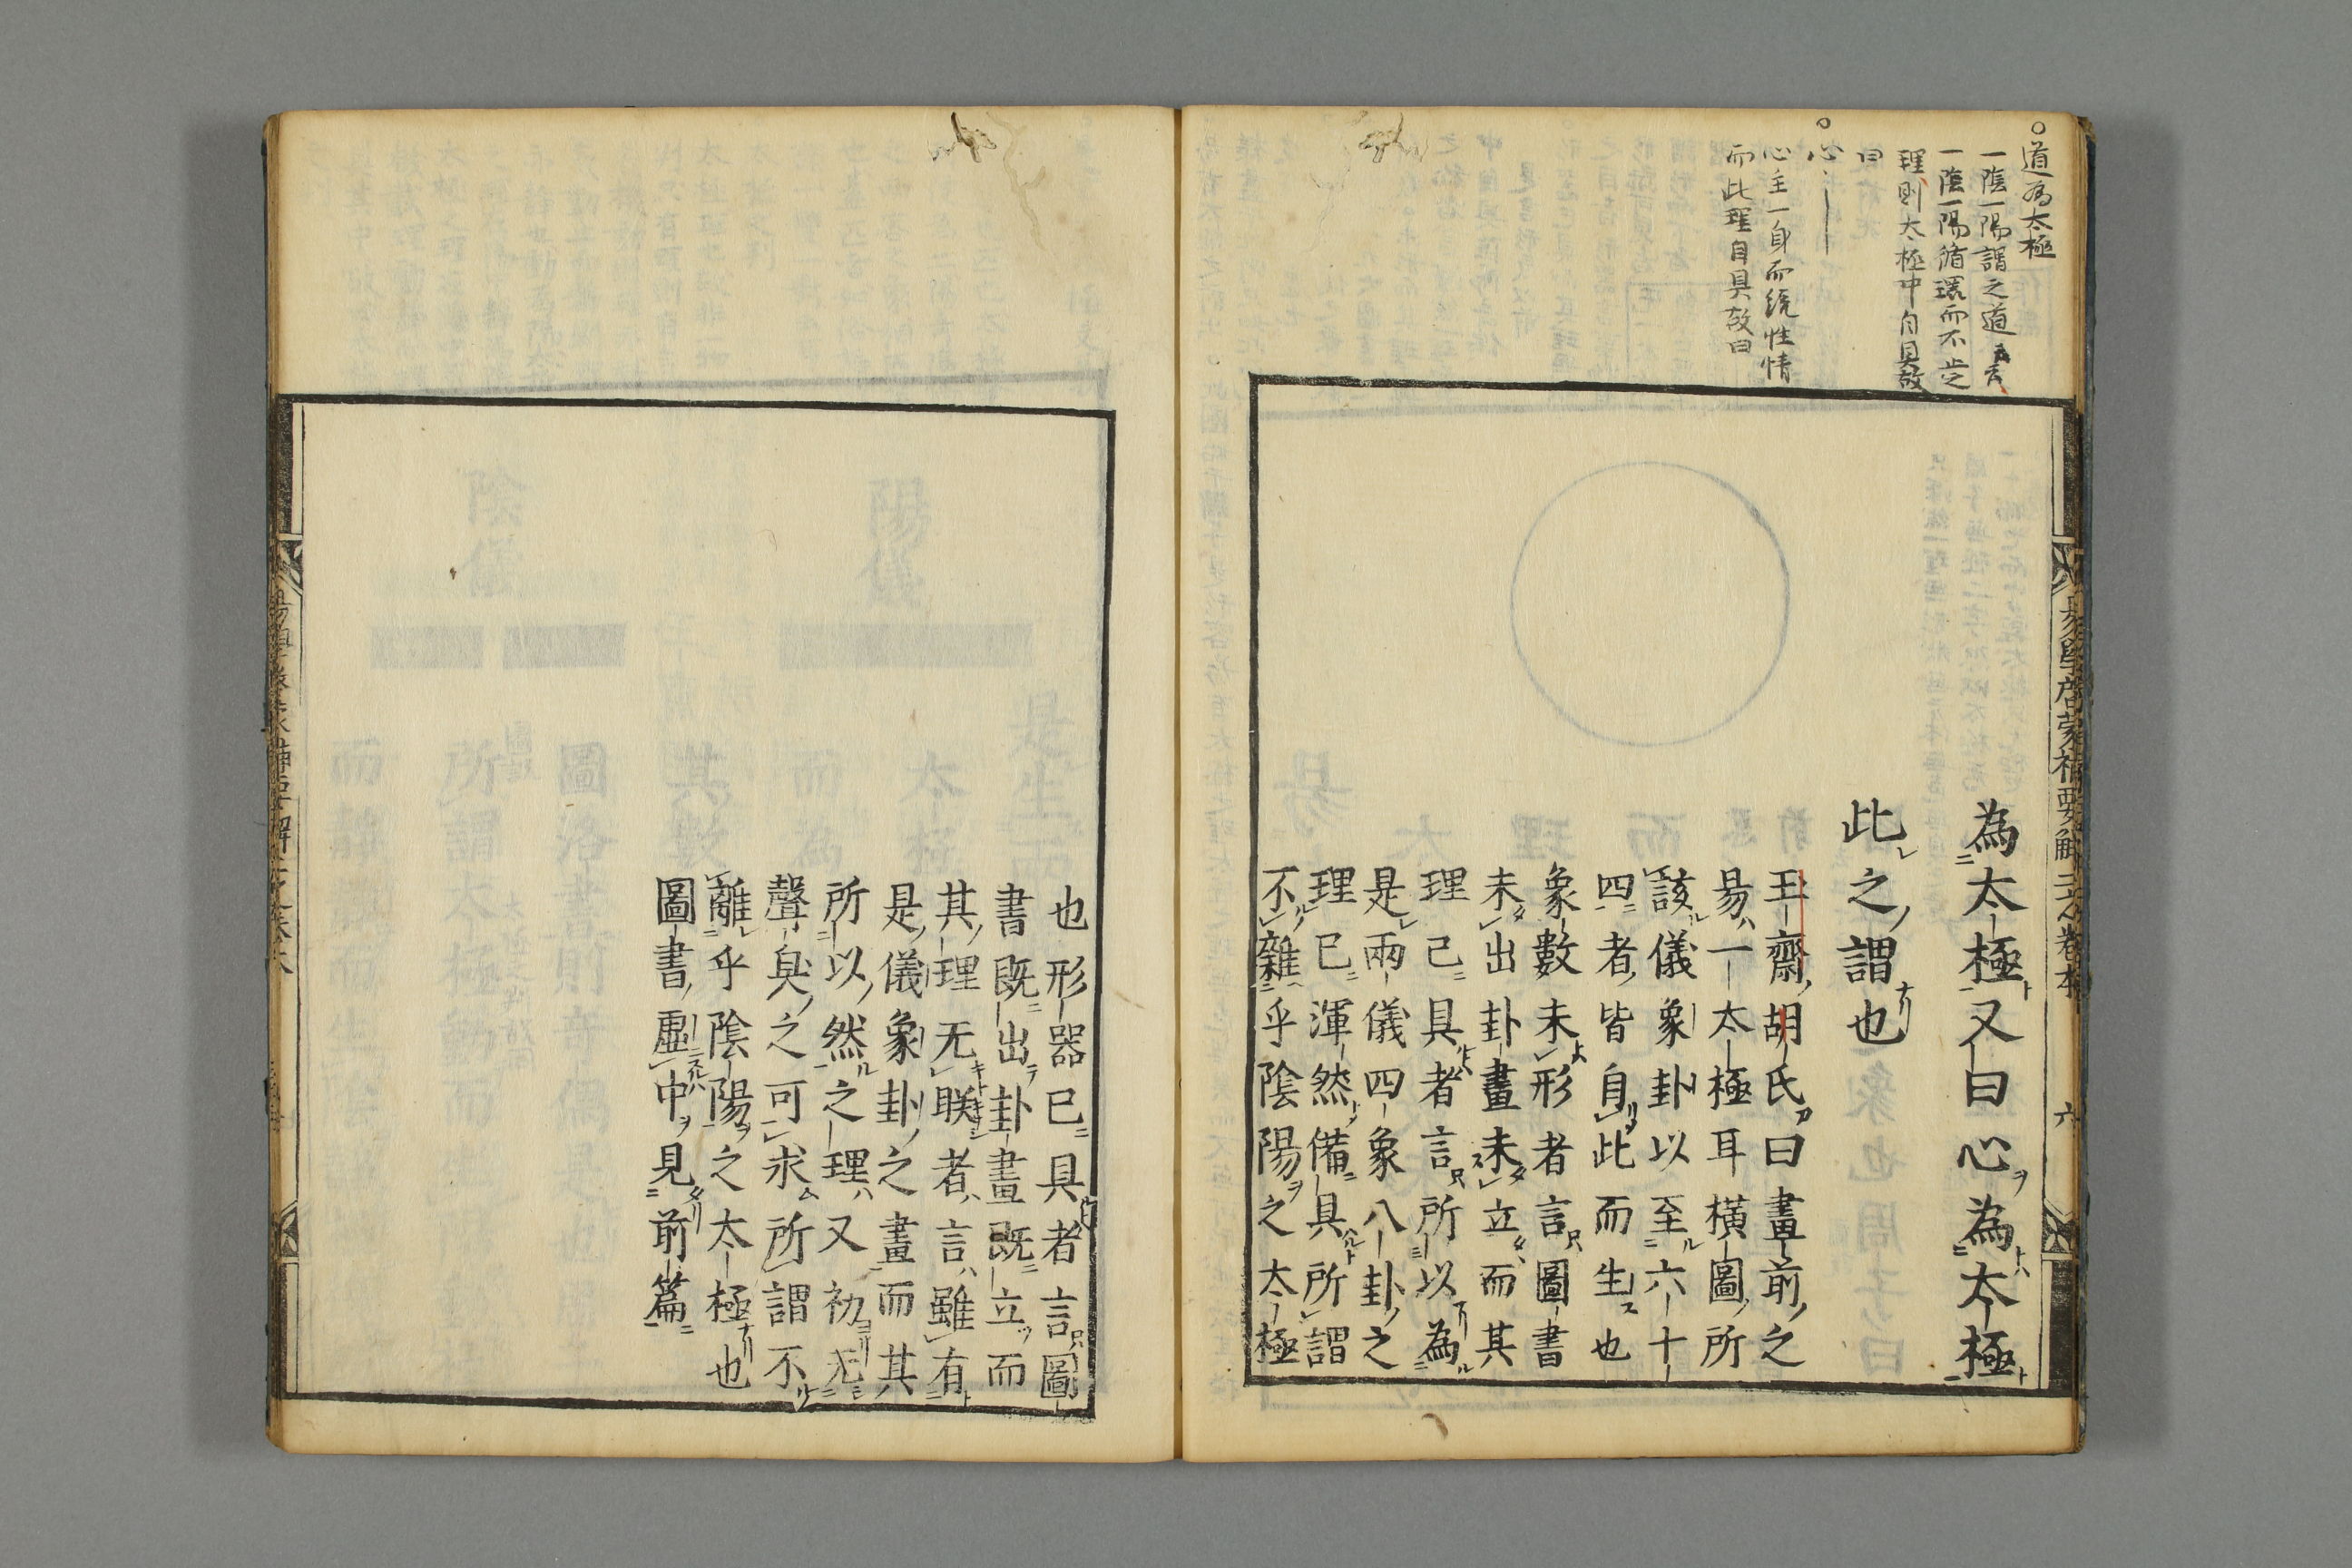 道為太極
一陰一陽謂之道
一陰一陽循環而不⿱
理則太極中自具故
曰
心
心主一身而統性情
而此理自具故曰
易學啓蒙補要解
六
為太極又曰心為太極
此之謂也
玉齋胡氏曰畫前之
易一太極耳橫圖所
該儀象卦以至六十
四者皆自此而生也
象數未形者言圖書
未出卦畫未立而其
理已具者言所以為
是兩儀四象八卦之
理已渾然備具所謂
不雜乎陰陽之太極
也形器已具者言圖
書既出卦畫既立而
其理无眹者言雖有
是儀象卦之畫而其
所以然之理又初无
聲臭之可求所謂不
離乎陰陽之太極也
圖書虛中見前篇